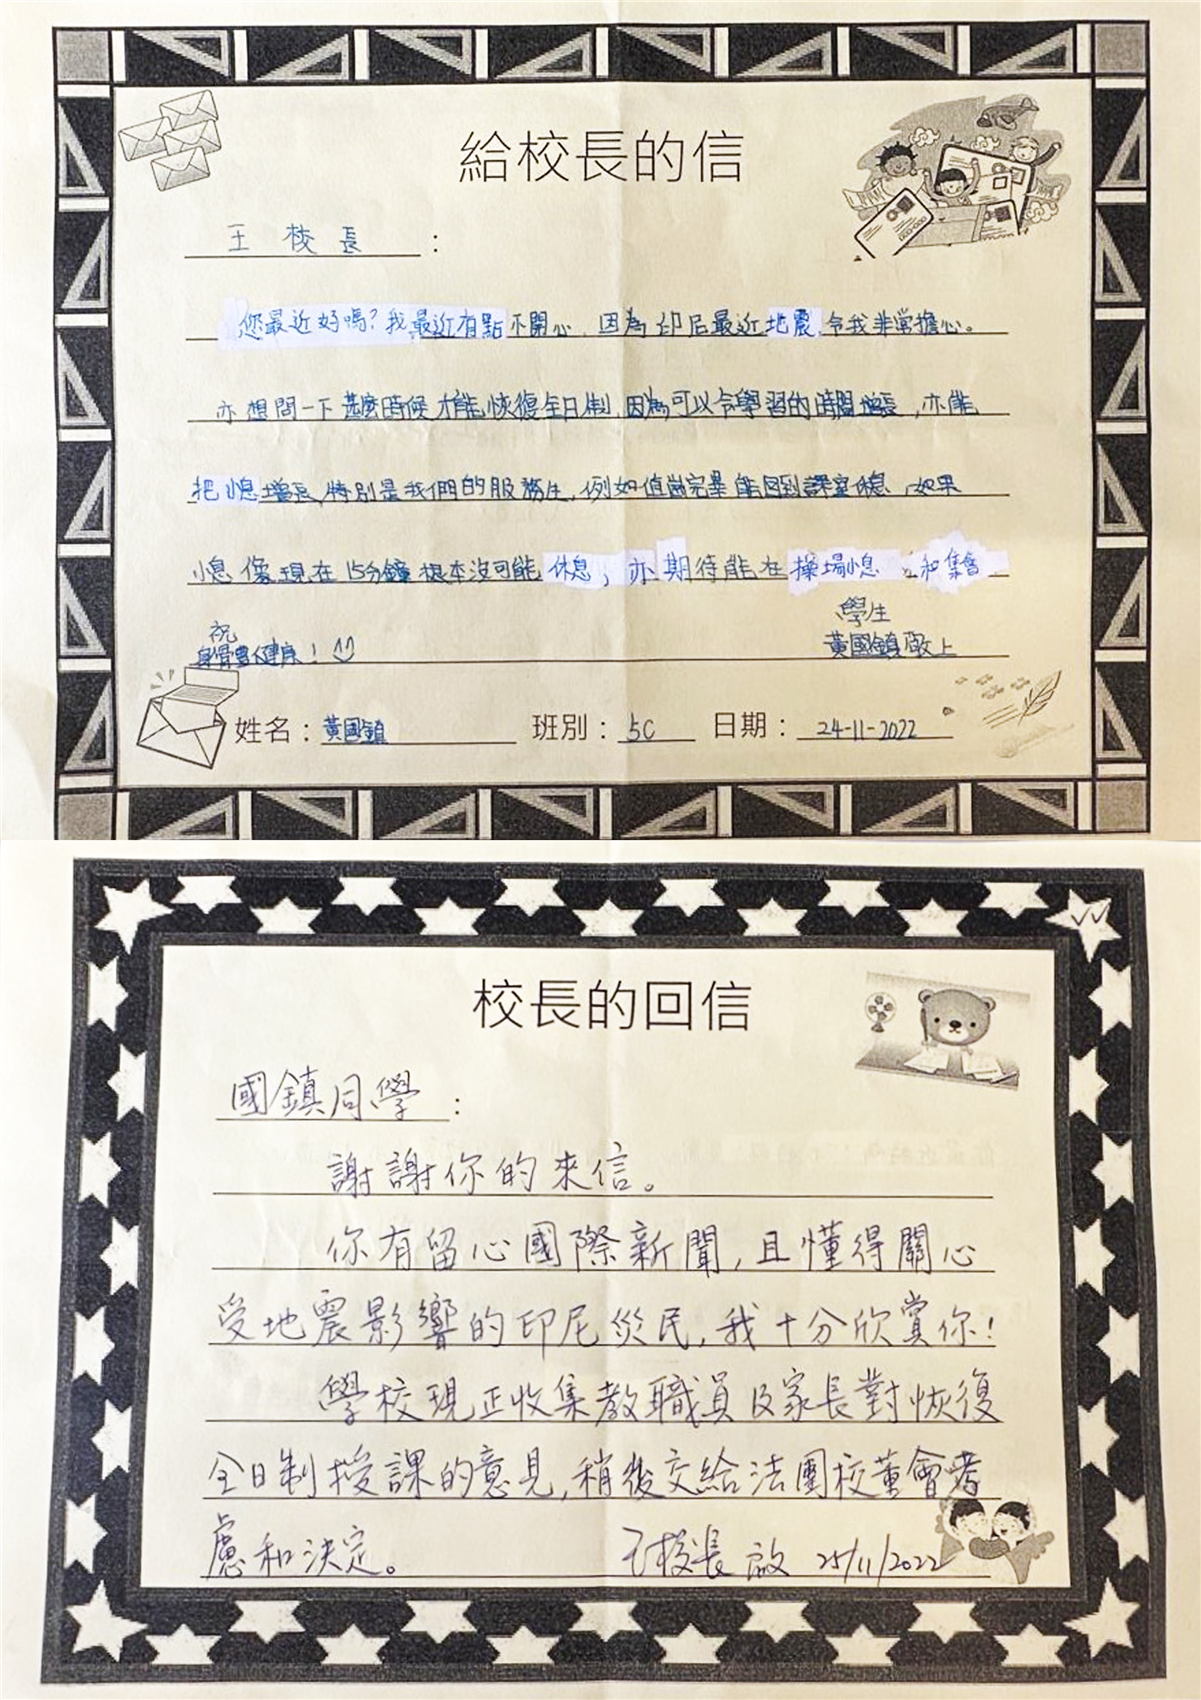 給校長的信
王校長：
您最近好嗎？我最近有點不開心，因為印尼最近地震，令我非常擔心。
亦想問一下甚麼時候才能恢復全日制，因為可以令學習的時間增長，亦能
把小息增長，特別是我們的服務生，例如值崗完畢能回到課室休息，如果
小息像現在15分鐘根本沒可能休息，亦期待能在操場小息和集會
祝
身體健康！
學生
黃國鎮敬上
姓名：黃國鎮 班別：5C 日期：24-11-2022
校長的回信
國鎮同學：
謝謝你的來信。
你有留心國際新聞，且懂得關心
受地震影響的印尼災民，我十分欣賞你！
學校現正收集教職員及家長對恢復
全日制授課的意見，稍後交給法團校董會考
慮和決定。 王校長啟 25/11/2022